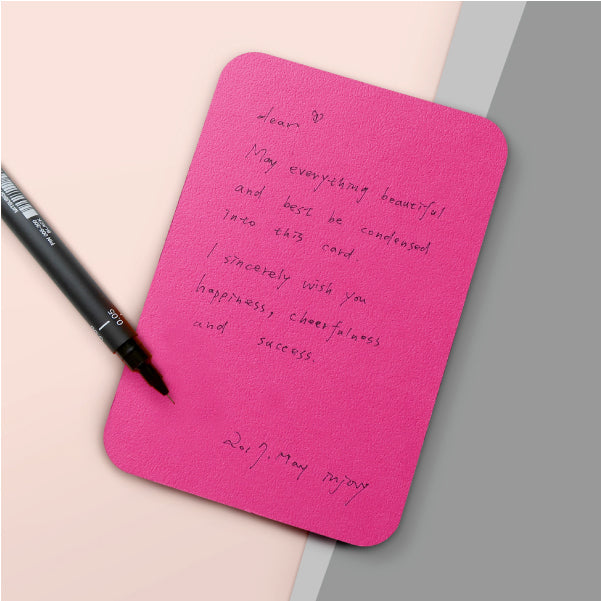 dear
May everything beautiful
and best be condensed
into this card.
I sincerely wish you
happiness, cheerfulness
and success.
2017. May injoy
0.05